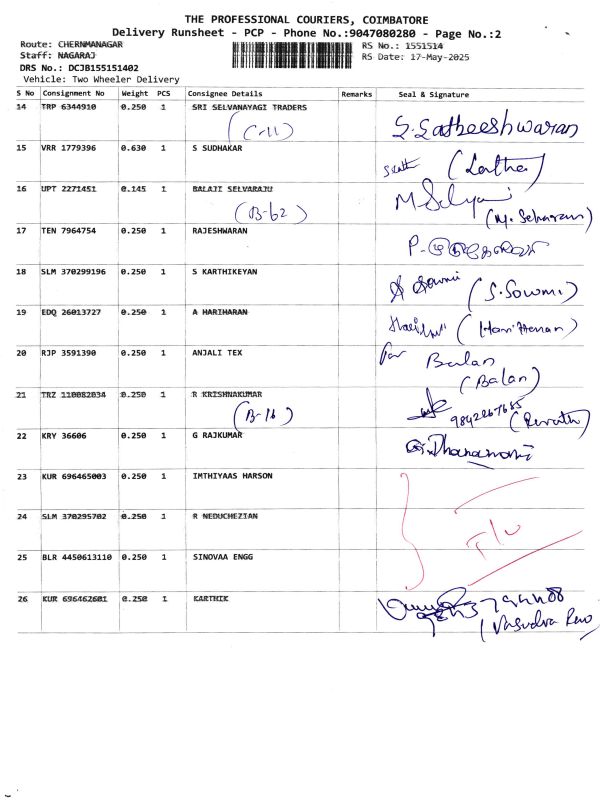 THE PROFESSIONAL COURIERS, COIMBATORE
Delivery Runsheet - PCP - Phone No.:9047080280 - Page No.:2
Route: CHERNMANAGAR
RS No.: 1551514
Staff: NAGARAJ
RS Date: 17-May-2025
DRS No.: DCJB155151402
Vehicle: Two Wheeler Delivery
S No Consignment No Weight PCS Consignee Details Remarks Seal & Signature
14 TRP 6344910 0.250 1 SRI SELVANAYAGI TRADERS
(C-11) S. Satheeshwaran
15 VRR 1779396 0.630 1 S SUDHAKAR
(Latha)
16 UPT 2271451 0.145 1 BALAJI SELVARAJU
(B-62)
17 TEN 7964754 0.250 1 RAJESHWARAN
18 SLM 370299196 0.250 1 S KARTHIKEYAN
(S.Sowmi)
19 EDQ 26013727 0.250 1 A HARIHARAN
(Hariharan)
20 RJP 3591390 0.250 1 ANJALI TEX
for Balan
(Balan)
21 TRZ 110082034 0.250 1 R KRISHNAKUMAR
(B-16) (Revathi)
22 KRY 36606 0.250 1 G RAJKUMAR
G. Dhanamani
23 KUR 696465003 0.250 1 IMTHIYAAS HARSON
24 SLM 370295702 0.250 1 R NEDUCHEZIAN
25 BLR 4450613110 0.250 1 SINOVAA ENGG
26 KUR 696462601 0.250 1 KARTHIK
(Vasudva Rao